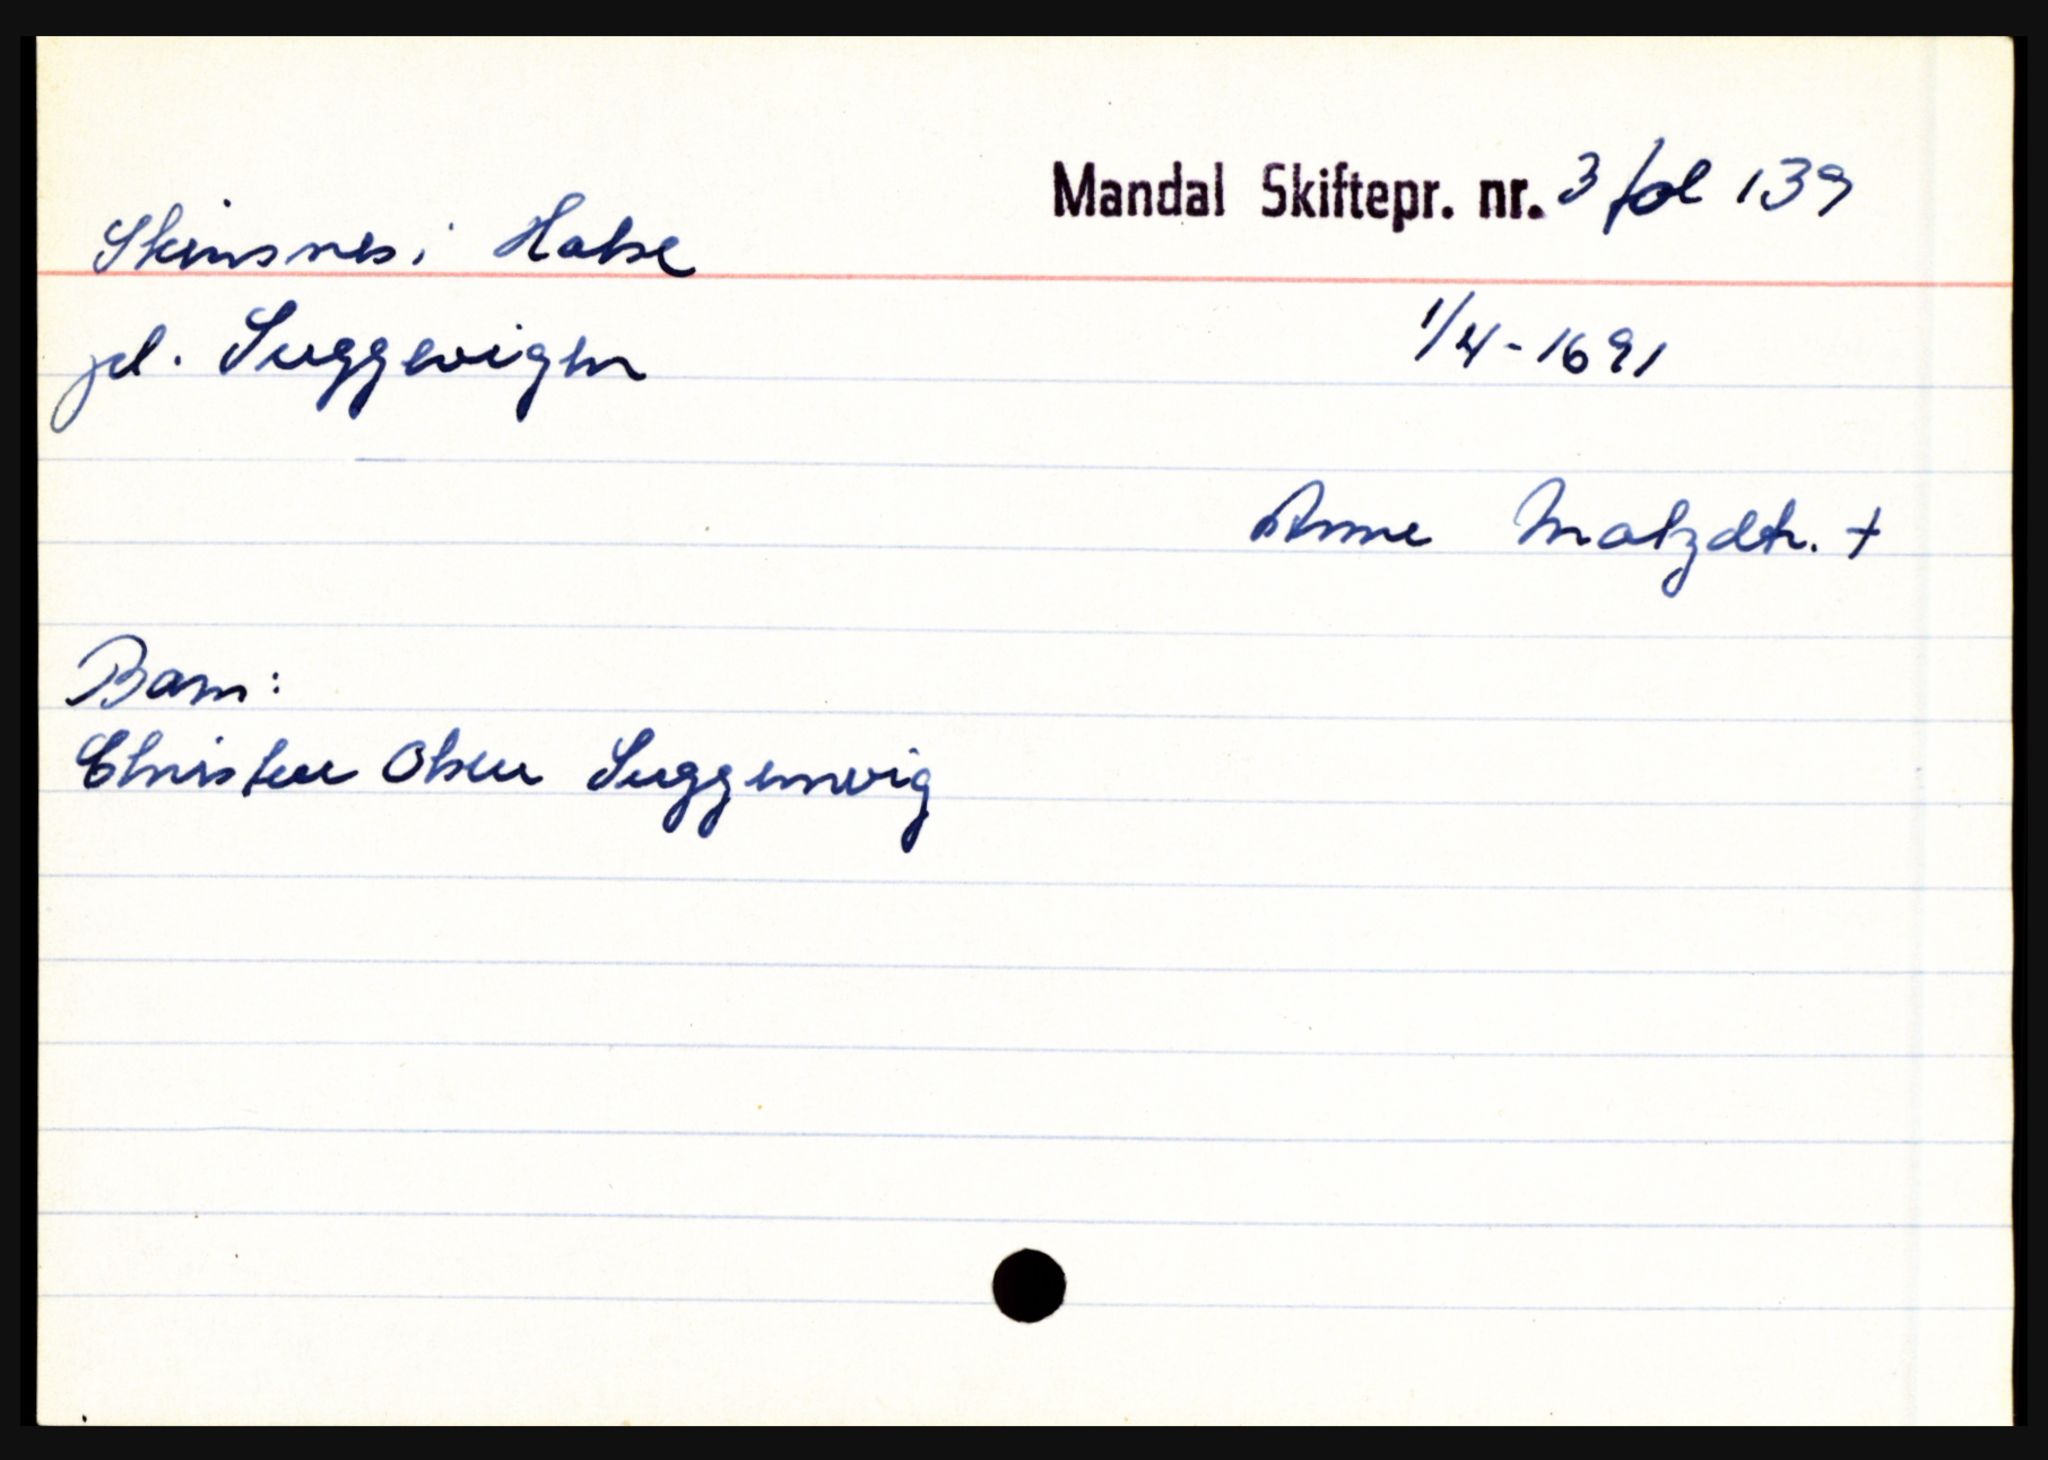 Mandal Skiftepr. nr. 3 fol 139
Skinsnes i Halse
pl. Suggevigen
1/4-1691
Anne Matzdtr. +
Barn:
Christen Olsen Suggenvig